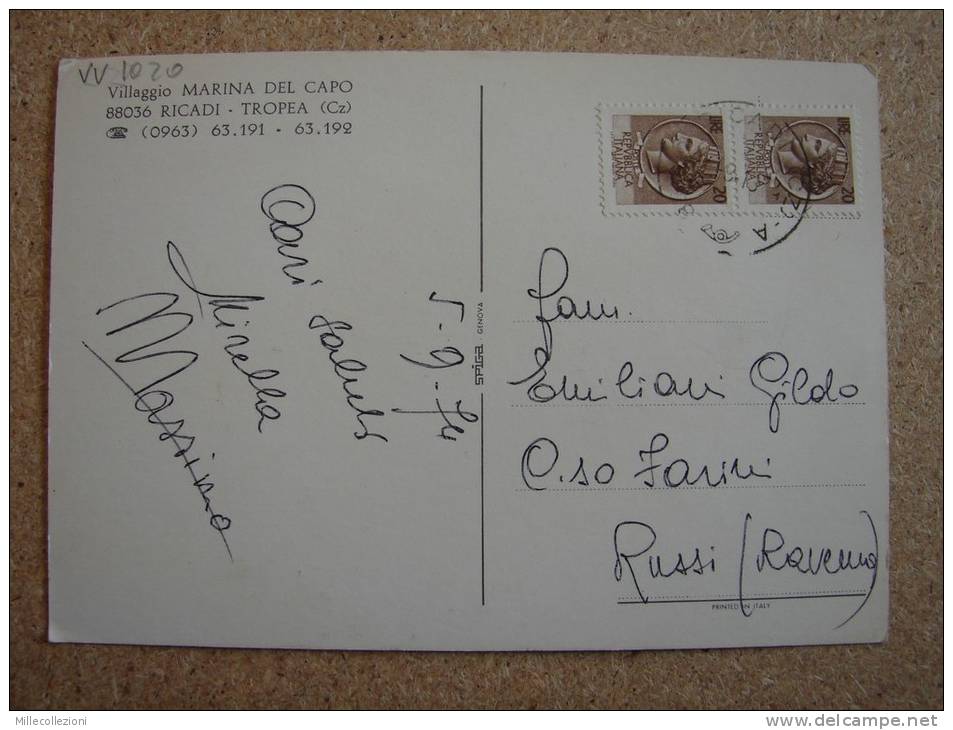 VV 1020
Villaggio MARINA DEL CAPO
88036 RICADI - TROPEA (Cz)
☎ (0963) 63.191 - 63.192
Cari saluti
Mirella
Massimo
5.9.74
SPIGA GENOVA
REPVBBLICA ITALIANA
LIRE 20
REPVBBLICA ITALIANA
LIRE 20
Fam.
Emiliani Gildo
C.so Farini
Russi (Ravenna)
PRINTED IN ITALY
Millecollezioni
www.delcampe.net